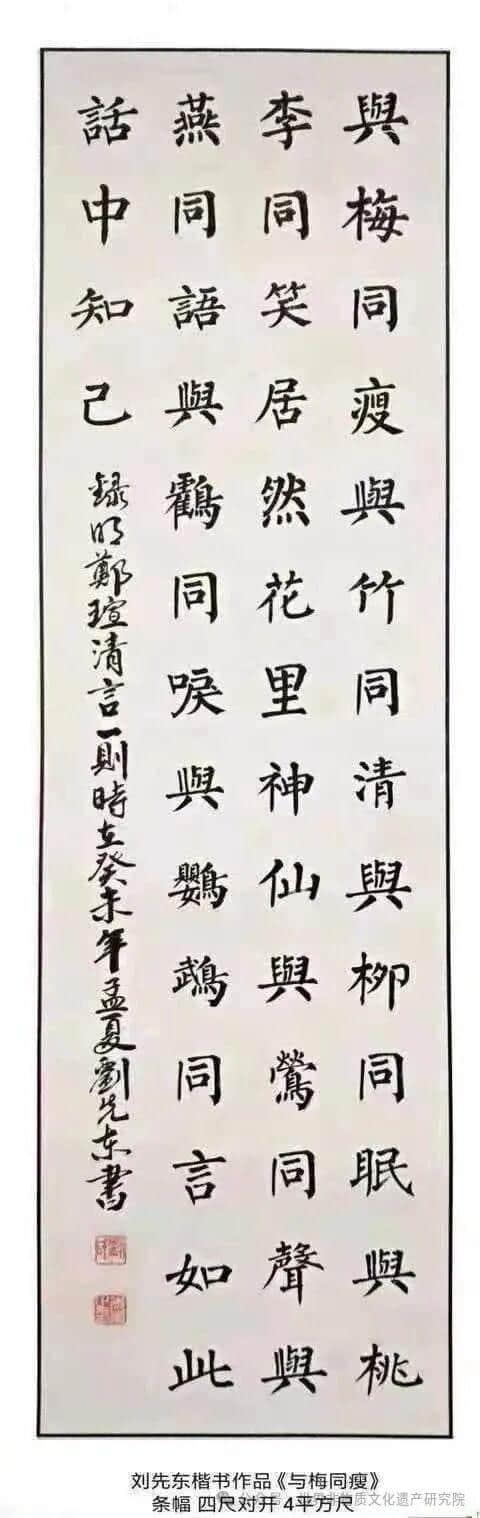 與梅同瘦與竹同清與柳同眠與桃
李同笑居然花里神仙與鶯同聲與
燕同語與鸖同唳與鸚鵡同言如此
話中知己
録明鄭瑄清言一則時在癸未年孟夏劉先東書
刘先东楷书作品《与梅同瘦》
条幅 四尺对开 4平方尺
公众号 · 世界非物质文化遗产研究院